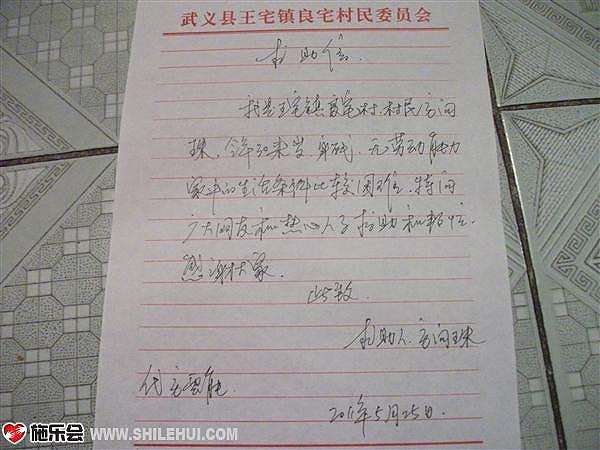 武义县王宅镇良宅村民委员会
求助信
我是王宅镇良宅村.村民方向
珠,今年50来岁 身残,无劳动能力
家中的生活条件比较困难.特向
广大网友和热心人士求助和帮忙.
感谢大家.
此致
求助人.方向珠
代
2011年5月25日
施乐会 WWW.SHILEHUI.COM